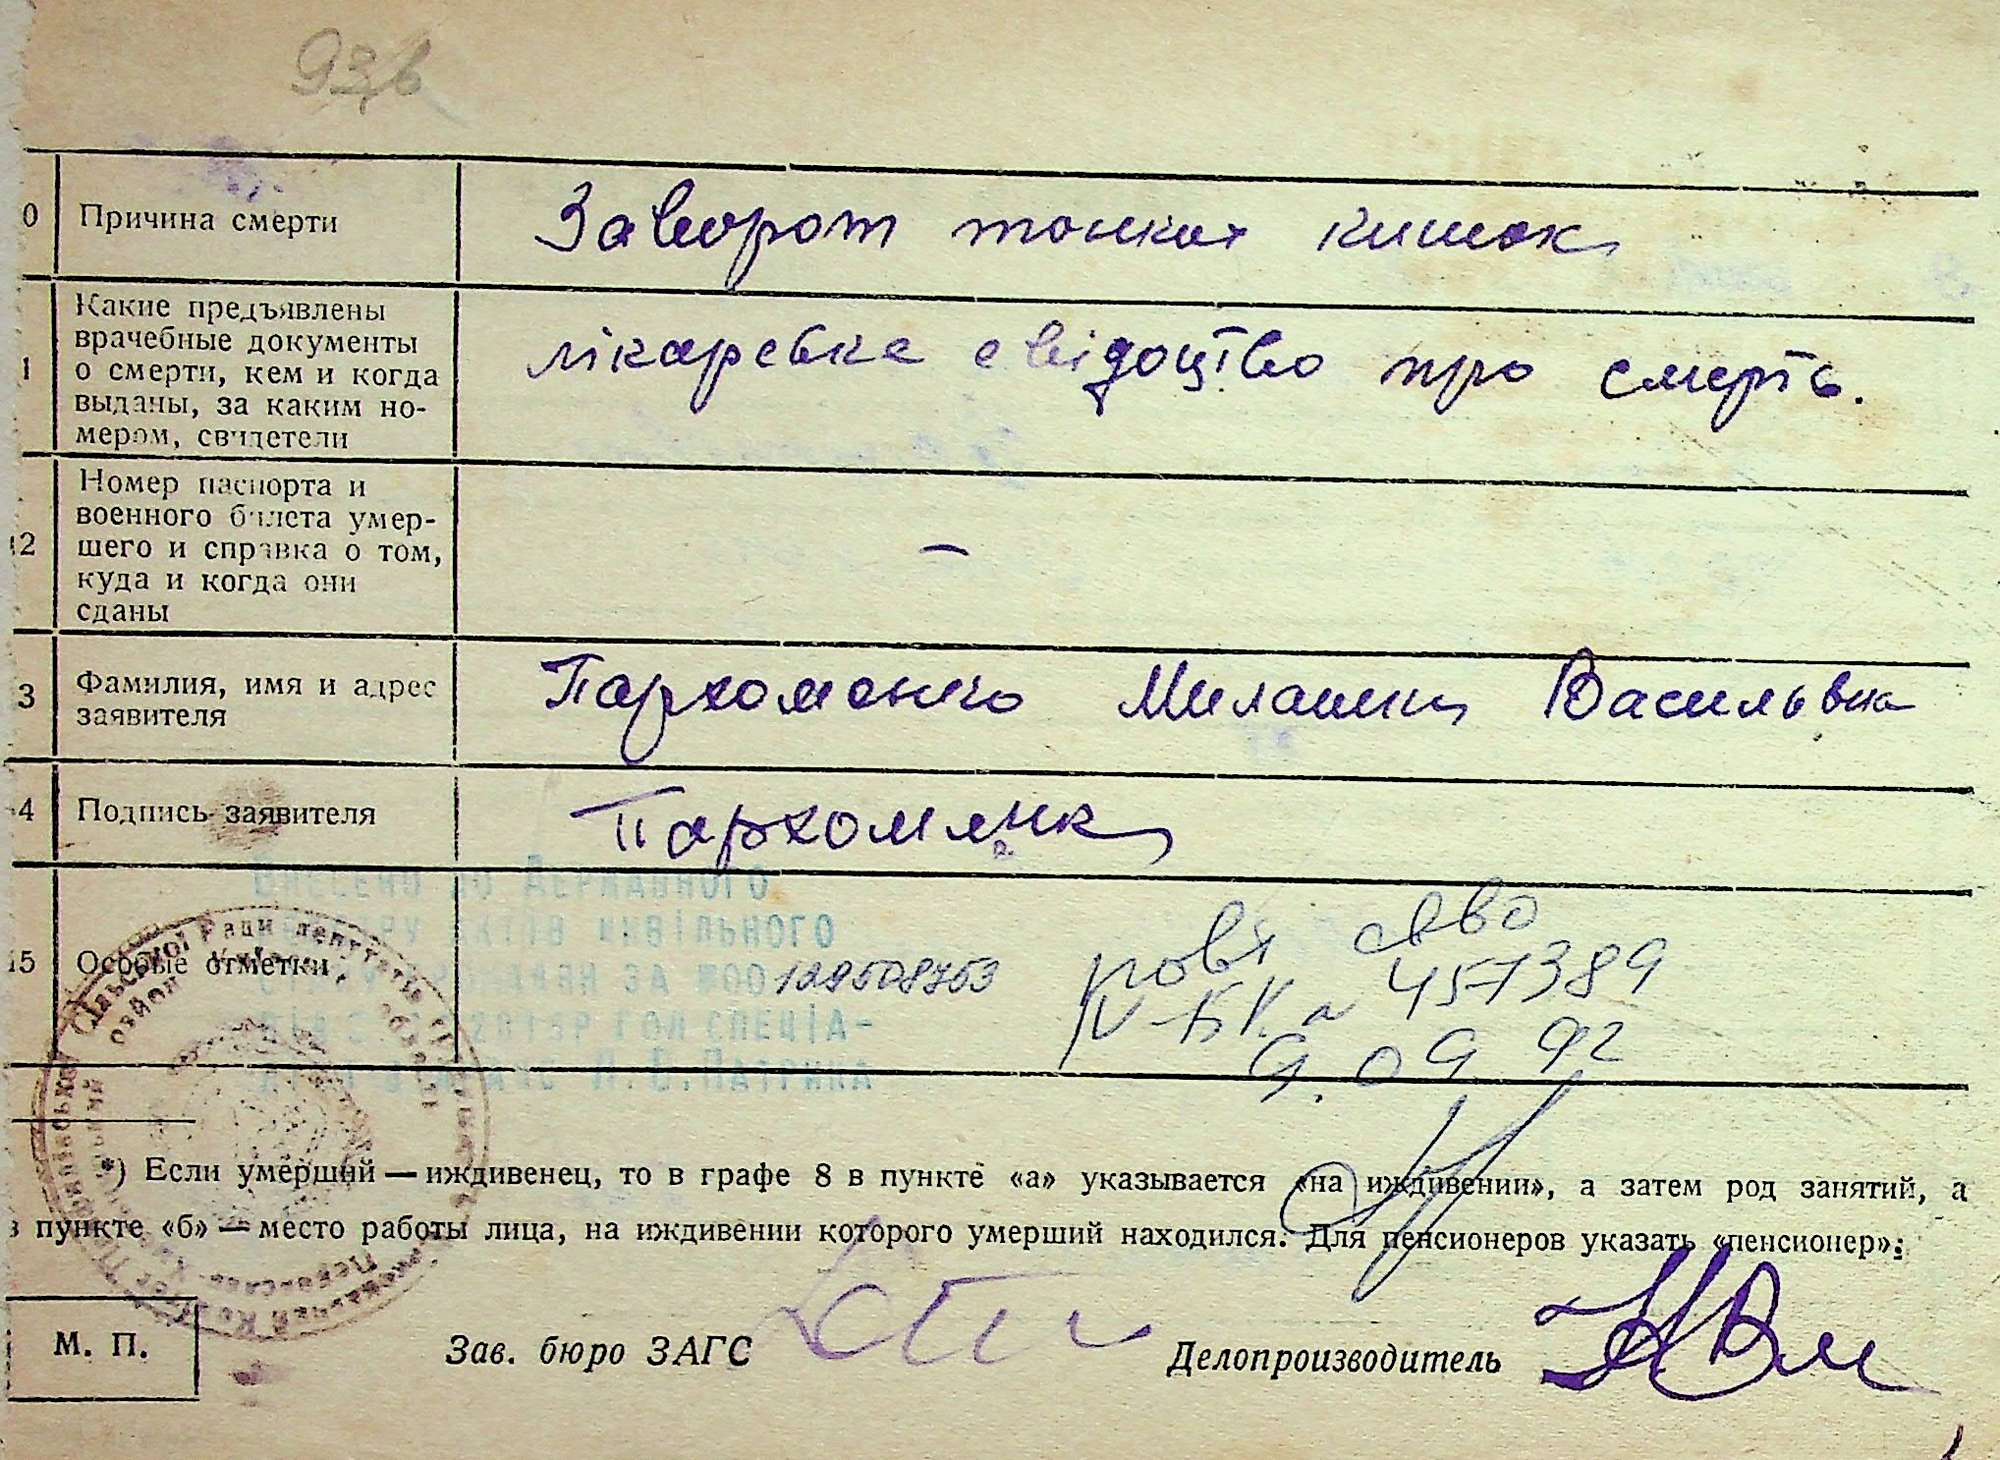 0 Причина смерти Заворот тонких кишок
1 Какие предъявлены
врачебные документы
о смерти, кем и когда
выданы, за каким но-
мером, свидетели
лікарське свідоцтво про смерть.
12 Номер паспорта и
военного билета умер-
шего и справка о том,
куда и когда они
сданы
–
3 Фамилия, имя и адрес
заявителя
Пархоменко Василівна
4 Подпись заявителя
15 Особые отметки
Внесено до Державного
реєстру актів цивільного
стану громадян за №00129508753
гол спеціа-
Патрика
повт св-во
457389
9.09 92
*) Если умерший — иждивенец, то в графе 8 в пункте «а» указывается «на иждивении», а затем род занятий, а
в пункте «б» — место работы лица, на иждивении которого умерший находился. Для пенсионеров указать «пенсионер».
М. П. Зав. бюро ЗАГС Делопроизводитель